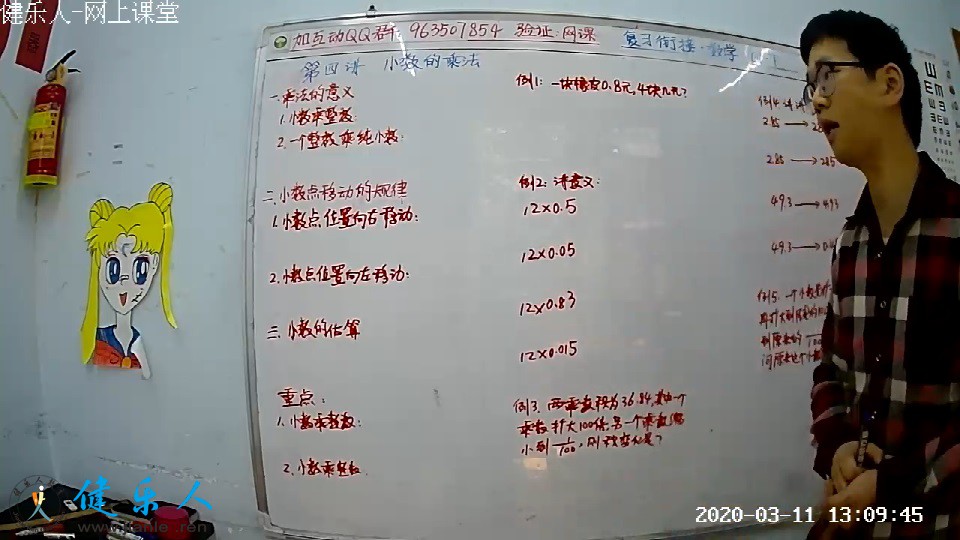 健乐人-网上课堂
加互动QQ群: 963507854 验证:网课
复习衔接·数学
第四讲 小数的乘法
一.乘法的意义
1.小数乘整数:
2.一个整数乘纯小数:
二.小数点移动的规律
1.小数点位置向右移动:
2.小数点位置向左移动:
三.小数的估算
重点:
1.小数乘整数:
2.小数乘整数
例1: 一块橡皮0.8元,4块几元?
例2: 讲意义:
12×0.5
12×0.05
12×0.83
12×0.015
例3. 两乘数积为36.84,其中一个
乘数扩大100倍,另一个乘数缩
小到1/100,则积变化是?
例4
285→28
285→285
49.3→493
49.3→0.4
例5: 一个小数
健乐人
www.jianle.ren
2020-03-11 13:09:45